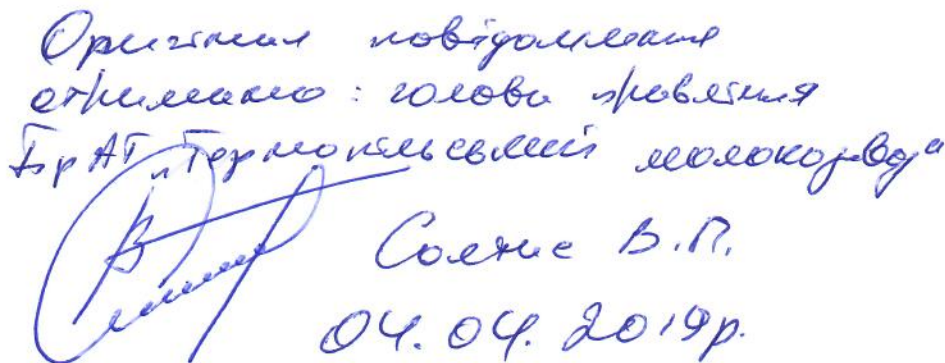 Оригінал повідомлення
отримано: голова правління
ПрАТ „Тернопільський молокозавод"
Солтис В.П.
04.04.2019р.